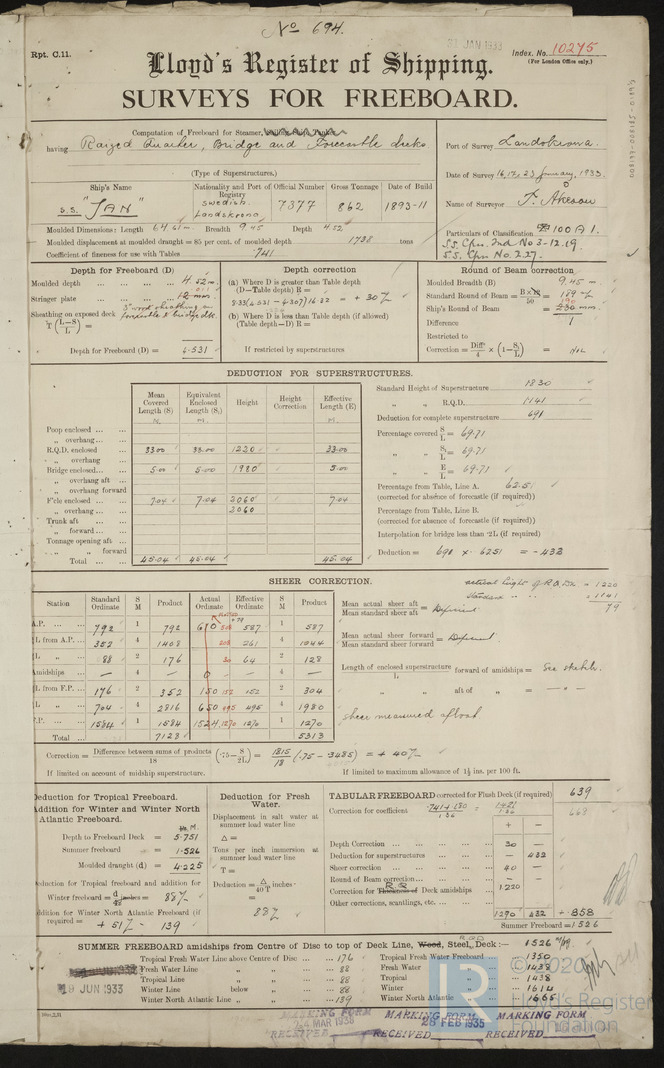 No 694.
Rpt. C.11.
31 JAN 1933
Index. No. 10275
(For London Office only.)
Lloyd's Register of Shipping.
SURVEYS FOR FREEBOARD.
Computation of Freeboard for Steamer,
having Raized Quarter, Bridge and Forecastle decks
(Type of Superstructures.)
Port of Survey Landskrona.
Date of Survey 16, 17, 23 January, 1933.
Name of Surveyor
Particulars of Classification 100 A 1.
Ship's Name Nationality and Port of Registry Official Number Gross Tonnage Date of Build
s.s. "JAN" Swedish. Landskrona 7377 862 1893-11
Moulded Dimensions: Length 64.61 Breadth 9.45 Depth 4.52
Moulded displacement at moulded draught = 85 per cent. of moulded depth 1738 tons
Coefficient of fineness for use with Tables .741
Depth for Freeboard (D)
Moulded depth 4.52 m.
Stringer plate
Sheathing on exposed deck
T (L-S/L) =
Depth for Freeboard (D) = 4.531
Depth correction
(a) Where D is greater than Table depth
(D—Table depth) R =
8.33(4.531 - 4.307)16.32 = + 30
(b) Where D is less than Table depth (if allowed)
(Table depth—D) R =
If restricted by superstructures
Round of Beam correction
Moulded Breadth (B) 9.45 m.
Standard Round of Beam = B×12/50 = 189
Ship's Round of Beam = 190
Difference 1
Restricted to
Correction = Diff/4 × (1-S1/L) = NIL
DEDUCTION FOR SUPERSTRUCTURES.
Mean Covered Length (S) Equivalent Enclosed Length (S1) Height Height Correction Effective Length (E)
Poop enclosed
„ overhang
R.Q.D. enclosed 33.00 33.00 1220 33.00
„ overhang
Bridge enclosed 5.00 5.00 1980 5.00
„ overhang aft
„ overhang forward
F'cle enclosed 7.04 7.04 2060 7.04
„ overhang 2060
Trunk aft
„ forward
Tonnage opening aft
„ „ forward
Total 45.04 45.04 45.04
Standard Height of Superstructure 1830
„ „ R.Q.D. 1141
Deduction for complete superstructure 691
Percentage covered S/L = 69.71
„ „ S1/L = 69.71
„ „ E/L = 69.71
Percentage from Table, Line A. 62.51
(corrected for absence of forecastle (if required))
Percentage from Table, Line B.
(corrected for absence of forecastle (if required))
Interpolation for bridge less than ·2L (if required)
Deduction = 691 × .6251 = - 432
SHEER CORRECTION.
actual height of R.Q.D. = 1220
Standard „ „ = 1141
79
Station Standard Ordinate S M Product Actual Ordinate Effective Ordinate S M Product
A.P. 792 1 792 610 587 1 587
L from A.P. 352 4 1408 261 4 1044
L „ 88 2 176 64 2 128
Amidships — 4 — 0 — 4 —
L from F.P. 176 2 352 150 152 152 2 304
L „ 704 4 2816 650 495 495 4 1980
F.P. 1584 1 1584 1524 1270 1270 1 1270
Total 7128 5313
Mean actual sheer aft / Mean standard sheer aft = Deficient
Mean actual sheer forward / Mean standard sheer forward = Deficient
Length of enclosed superstructure / L forward of amidships = See sketch.
„ „ aft of „ = — „ —
sheer measured afloat
Correction = Difference between sums of products / 18 (·75 - S/2L) = 1815/18 (.75 - .3485) = + 40
If limited on account of midship superstructure.
If limited to maximum allowance of 1½ ins. per 100 ft.
Deduction for Tropical Freeboard.
Addition for Winter and Winter North Atlantic Freeboard.
Depth to Freeboard Deck = 5.751
Summer freeboard = 1.526
Moulded draught (d) = 4.225
Deduction for Tropical freeboard and addition for
Winter freeboard = 88
Addition for Winter North Atlantic Freeboard (if required) = + 51 - 139
Deduction for Fresh Water.
Displacement in salt water at summer load water line
Δ =
Tons per inch immersion at summer load water line
T =
Deduction = Δ/40T inches
= 88
TABULAR FREEBOARD corrected for Flush Deck (if required) 639
Correction for coefficient 668
+ —
Depth Correction 30 —
Deduction for superstructures — 432
Sheer correction 40 —
Round of Beam correction — —
Correction for R.Q. Deck amidships 1.220
Other corrections, scantlings, etc.
1290 432 + 858
Summer Freeboard = 1526
SUMMER FREEBOARD amidships from Centre of Disc to top of Deck Line, Wood, Steel, Deck:— 1526
Tropical Fresh Water Line above Centre of Disc 176 Tropical Fresh Water Freeboard 1350
Fresh Water Line „ „ 88 Fresh Water „ 1438
Tropical Line „ „ 88 Tropical „ 1438
Winter Line below „ 88 Winter „ 1614
Winter North Atlantic Line „ „ 139 Winter North Atlantic „ 1665
19 JUN 1933
MARKING FORM
MAR 1938
RECEIVED
MARKING FORM
28 FEB 1935
RECEIVED
MARKING FORM
RECEIVED
LR
Lloyd's Register
Foundation